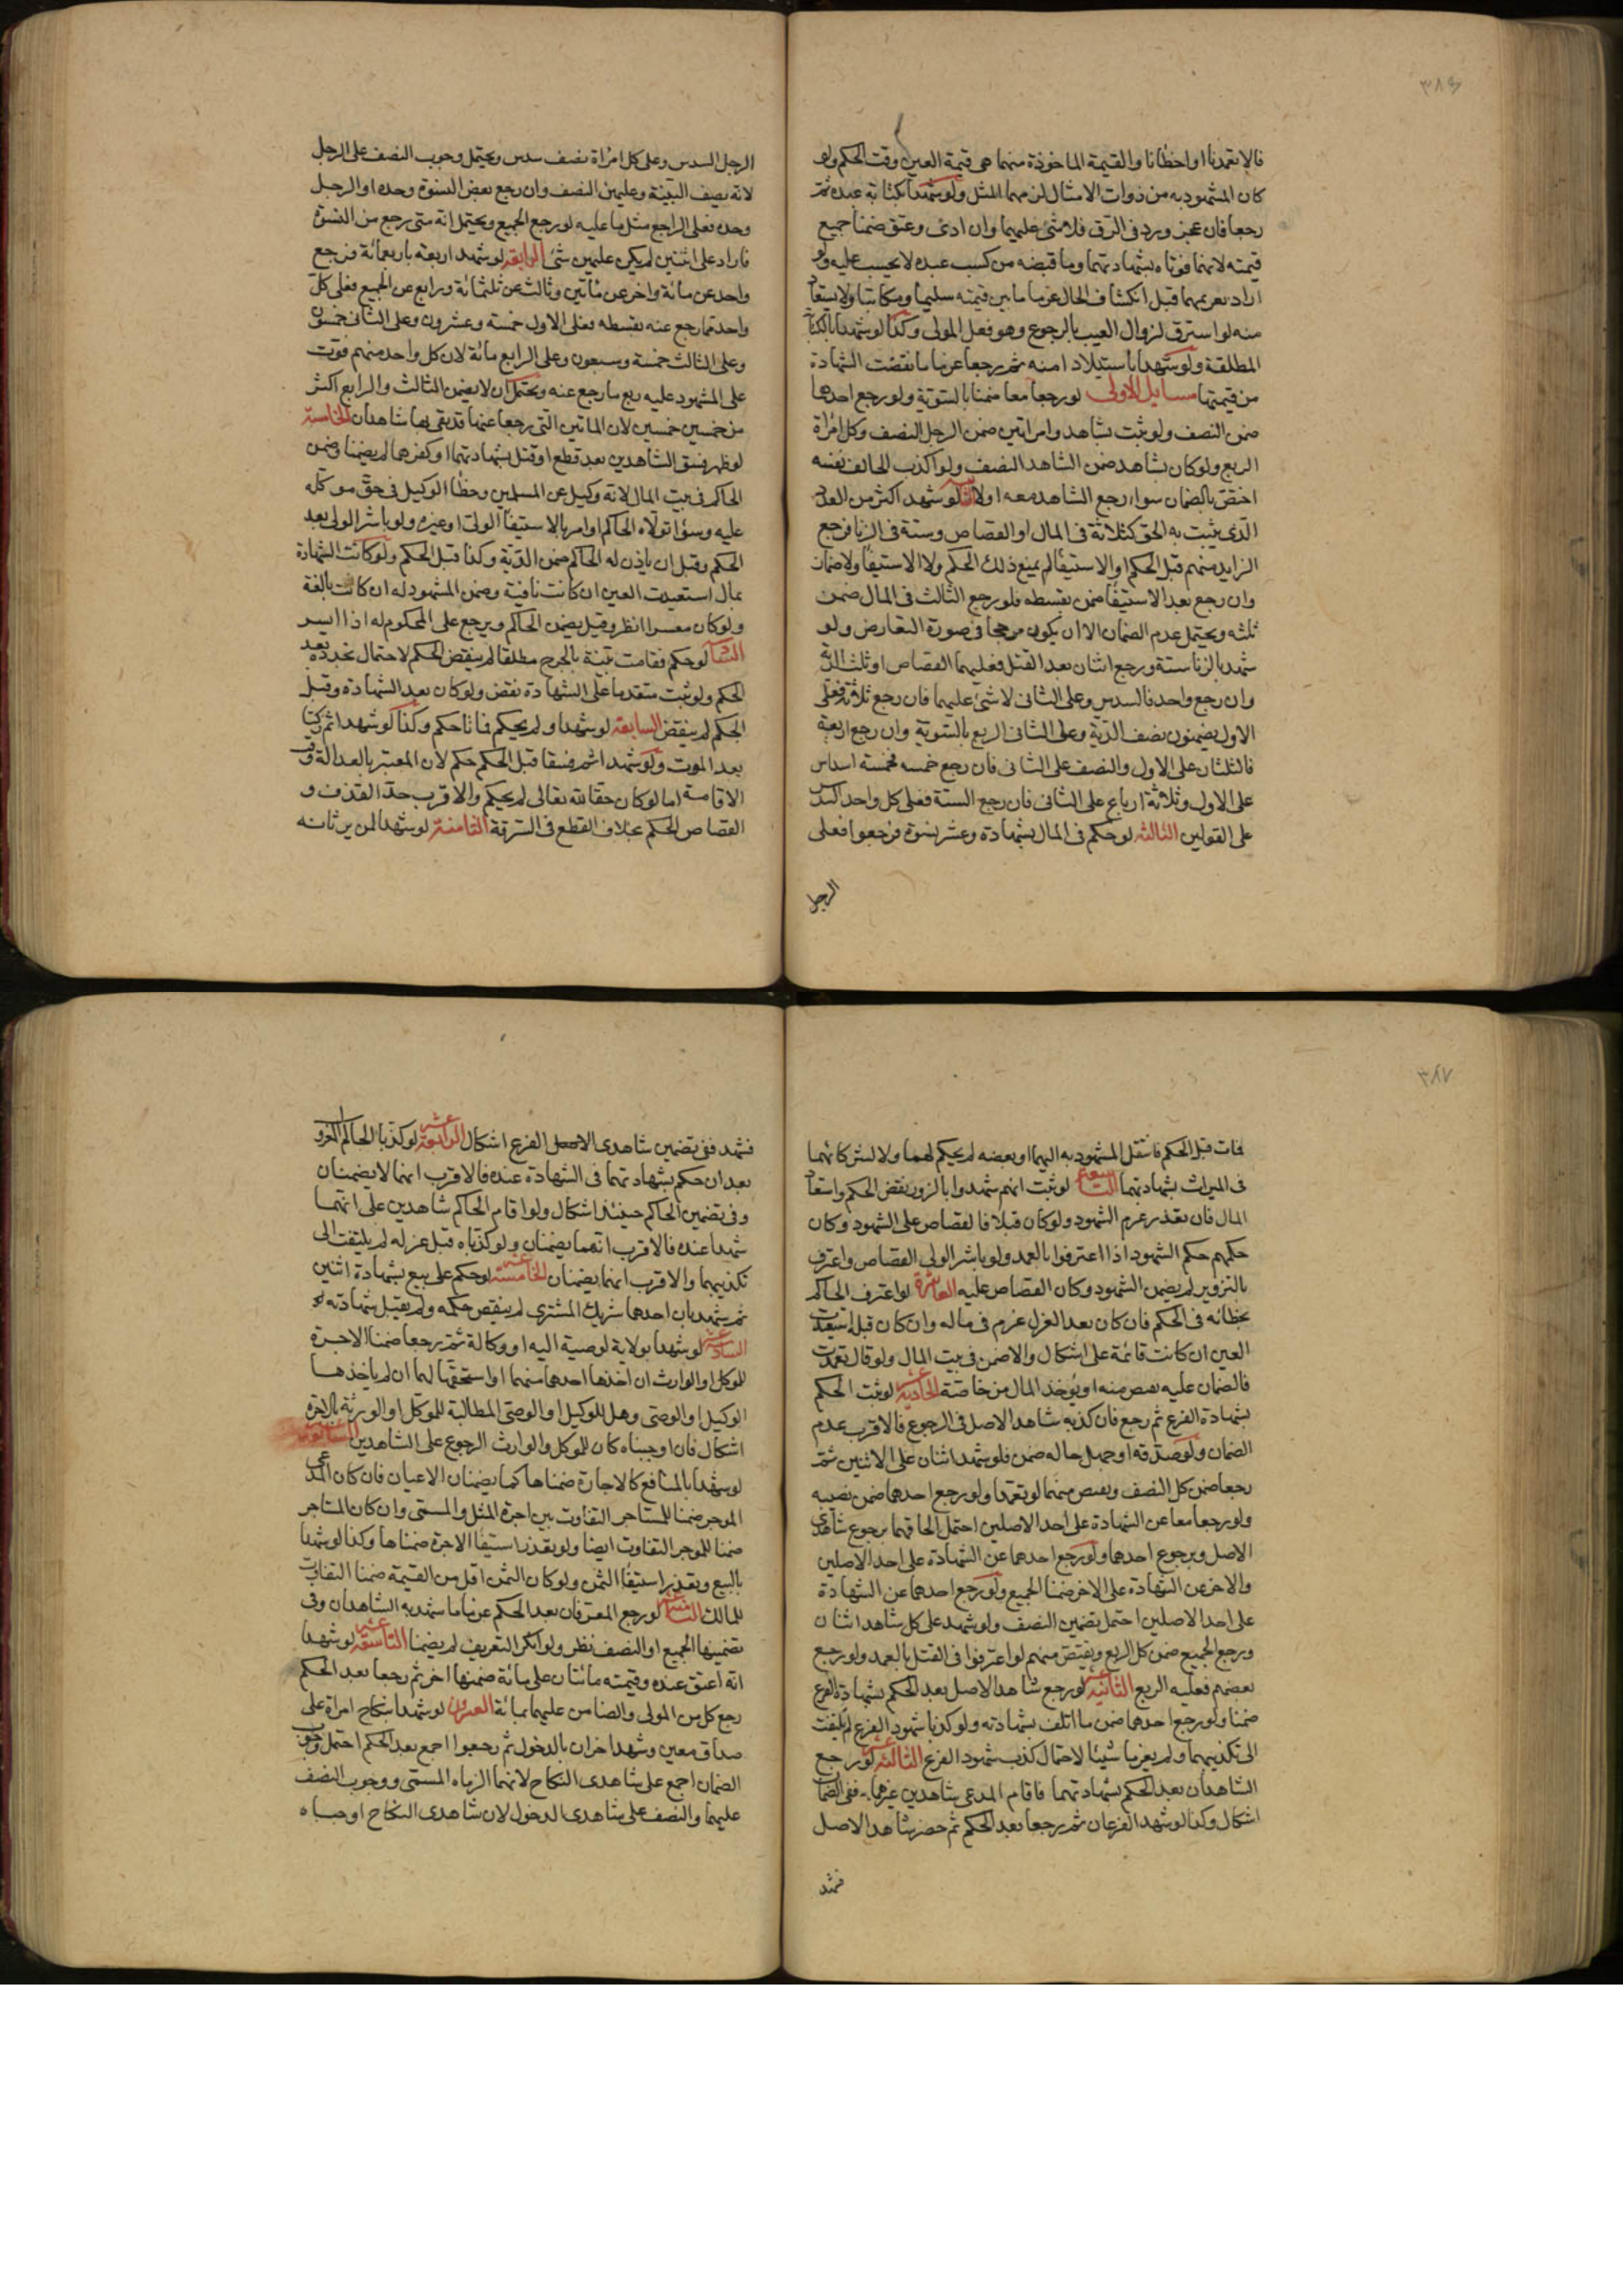 ٣٨٦
فالاتعمدنا او اخطانا والقيمة الماخوذة منهما هى قيمة العين وقت الحكم ولو
كان المشهود به من ذوات الامثال لزمهما المثل ولو شهدا بكتابة عبده ثم
رجعا فان عجز ورد فى الرق فلا شئ عليهما وان ادى وعتق ضمنا جميع
قيمته لانهما فوتاه بشهادتهما وما قبضه من كسب عبده لا يحسب عليه ولو
اراد تغريمهما قبل انكشاف الحال غرما ما بين قيمته سليما ومكاتبا ولا يستعاد
منه لو استرق لزوال العيب بالرجوع وهو فعل المولى وكذا لو شهدا بالكتابة
المطلقة ولو شهدا باستيلاد امته ثم رجعا غرما ما نقصت الشهادة
من قيمتها مسايل الاولى لو رجعا معا ضمنا بالسوية ولو رجع احدهما
ضمن النصف ولو ثبت بشاهد وامراتين ضمن الرجل النصف وكل امراة
الربع ولو كان بشاهد ضمن الشاهد النصف ولو اكذب الحالف نفسه
اختص بالضمان سواء رجع الشاهد معه او لا لو شهد اكثر من العدد
الذى يثبت به الحق كثلاثة فى المال او القصاص وستة فى الزنا فرجع
الزايد منهم قبل الحكم او الاستيفا لم يمنع ذلك الحكم ولا الاستيفا ولا ضمان
وان رجع بعد الاستيفا ضمن بقسطه فلو رجع الثالث فى المال ضمن
ثلثه ويحتمل عدم الضمان الا ان يكون مرجحا فى صورة التعارض ولو
شهد بالزنا ستة ورجع اثنان بعد القتل فعليهما القصاص او ثلث الدية
وان رجع واحد فالسدس وعلى الثانى لا شئ عليهما فان رجع ثلاثة فعلى
الاول يضمنون نصف الدية وعلى الثانى الربع بالسوية وان رجع اربعة
فالثلثان على الاول والنصف على الثانى فان رجع خمسه فخمسة اسداس
على الاول وثلاثة ارباع على الثانى فان رجع الستة فعلى كل واحد السدس
على القولين الثالثه لو حكم فى المال بشهادة وعشر نسوة فرجعوا فعلى
الرجل
الرجل السدس وعلى كل امراة نصف سدس ويحتمل وجوب النصف على الرجل
لانه نصف البينة وعليهن النصف وان رجع بعض النسوة وحده او الرجل
وحده فعلى الراجع مثل ما عليه لو رجع الجميع ويحتمل انه متى رجع من النسوة
مازاد على اثنتين لم يكن عليهن شئ الرابعة لو شهد اربعة باربعمائة فرجع
واحد عن مائة واخر عن مأتين وثالث عن ثلثمائة ورابع عن الجميع فعلى كل
واحد مما رجع عنه بقسطه فعلى الاول خمسة وعشرون وعلى الثانى خمسون
وعلى الثالث خمسة وسبعون وعلى الرابع مائة لان كل واحد منهم فوت
على المشهود عليه ربع ما رجع عنه ويحتمل ان لا يضمن الثالث والرابع اكثر
من خمسين خمسين لان الماتين التى رجعا عنها قد بقى بها شاهدان الخامسة
لو ظهر فسق الشاهدين بعد قطع او قتل بشهادتهما او كفرهما لم يضمنا وضمن
الحاكم فى بيت المال لانه وكيل عن المسلمين وخطأ الوكيل فى حق موكله
عليه وسوا تولاه الحاكم او امر بالاستيفا الولى او غيره ولو باشر الولى بعد
الحكم وقبل ان ياذن له الحاكم ضمن الدية وكذا قبل الحكم ولو كانت الشهادة
بمال استعيدت العين ان كانت باقية وضمن المشهود له ان كانت تالفة
ولو كان معسرا انظر وقيل يضمن الحاكم ويرجع على المحكوم له اذا ايسر
لو حكم فقامت بينة بالجرح مطلقا لم ينقض الحكم لاحتمال تجدده بعد
الحكم ولو ثبت متقدما على الشهادة نقض ولو كان بعد الشهادة وقبل
الحكم لم ينقض السابعة لو شهدا ولم يحكم فماتا حكم وكذا لو شهدا ثم زكيا
بعد الموت ولو شهدا ثم فسقا قبل الحكم حكم لان المعتبر بالعدالة وقت
الاقامة اما لو كان حقا لله تعالى لم يحكم والاقرب حد القذف و
القصاص الحكم بخلاف القطع فى السرقة الثامنة لو شهدا لمن يرثانه
٣٨٧
فمات قبل الحكم فانتقل المشهود به اليهما او بعضه لم يحكم لهما ولا لشركائهما
فى الميراث بشهادتهما التاسعة لو ثبت انهم شهدوا بالزور نقض الحكم واستعاد
المال فان تعذر غرم الشهود ولو كان قبلا فالقصاص على الشهود وكان
حكمهم حكم الشهود اذا اعترفوا بالعمد ولو باشر الولى القصاص واعترف
بالتزوير لم يضمن الشهود وكان القصاص عليه العاشرة لو اعترف الحاكم
بخطائه فى الحكم فان كان بعد العزل غرم فى ماله وان كان قبله استعيدت
العين ان كانت قائمة على اشكال والا ضمن فى بيت المال ولو قال تعمدت
فالضمان عليه يقتص منه او يؤخذ المال من خاصته الحادية عشر لو ثبت الحكم
بشهادة الفرع ثم رجع فان كذبه شاهد الاصل فى الرجوع فالاقرب عدم
الضمان ولو صدقه او جهل حاله ضمن فلو شهد اثنان على الاثنين ثم
رجعا ضمن كل النصف ويقتص منهما لو تعمدا ولو رجع احدهما ضمن نصيبه
ولو رجعا معا عن الشهادة على احد الاصلين احتمل الحاقهما برجوع شاهدى
الاصل وبرجوع احدهما ولو رجع احدهما عن الشهادة على احد الاصلين
والاخر عن الشهادة على الاخر ضمنا الجميع ولو رجع احدهما عن الشهادة
على احد الاصلين احتمل تضمين النصف ولو شهد على كل شاهد اثنان
ورجع الجميع ضمن كل الربع ويقتص منهم لو اعترفوا فى القتل بالعمد ولو رجع
بعضهم فعليه الربع الثانية عشر لو رجع شاهدا الاصل بعد الحكم بشهادة الفرع
ضمنا ولو رجع احدهما ضمن ما اتلف بشهادته ولو كذبا شهود الفرع لم يلتفت
الى تكذيبهما ولم يغرما شيئا لاحتمال كذب شهود الفرع الثالثة عشر لو رجع
الشاهدان بعد الحكم بشهادتهما فاقام المدعى شاهدين غيرهما ففى الضمان
اشكال وكذا لو شهد الفرعان ثم رجعا بعد الحكم ثم حضر شاهدا الاصل
فشهد
فشهد ففى تضمين شاهدى الفرع اشكال الرابعة عشر لو كذبا الحاكم
بعد ان حكم بشهادتهما فى الشهادة عنده فالاقرب انهما لا يضمنان
وفى تضمين الحاكم حينئذ اشكال ولو اقام الحاكم شاهدين على انهما
شهدا عنده فالاقرب انهما يضمنان ولو كذباه قبل عزله لم يلتفت الى
تكذيبهما والاقرب انهما يضمنان الخامسة عشر لو حكم على بيع بشهادة اثنين
ثم شهد بان احدهما شريك المشترى لم ينقض حكمه ولم يقبل شهادته
السادسة عشر لو شهدا بولاية لوصية اليه او وكالة ثم رجعا ضمنا الاجرة
للموكل او الوارث ان اخذها احدهما منهما او استحقها لهما ان لم ياخذها
الوكيل او الوصى وهل للوكيل او الوصى المطالبة للموكل او الورثة بالاجرة
اشكال فان اوجبناه كان للموكل والوارث الرجوع على الشاهدين
لو شهدا بالمنافع كالاجارة ضمناها كما يضمنان الاعيان فان كان المدعى
الموجر ضمنا للمستاجر التفاوت بين اجرة المثل والمسمى وان كان المستاجر
ضمنا للموجر التفاوت ايضا ولو تعذر استيفا الاجرة ضمناها وكذا لو شهدا
بالبيع وتعذر استيفا الثمن ولو كان الثمن اقل من القيمة ضمنا التفاوت
للمالك الثامنة عشر لو رجع المعرفان بعد الحكم غرما ما شهد به الشاهدان وفى
تضمينها الجميع او النصف نظر ولو انكر التعريف لم يضمنا التاسعة عشر لو شهدا
انه اعتق عبده وقيمته مائتان على مائة ضمنها اخر ثم رجعا بعد الحكم
رجع كل من المولى والضامن عليهما بمائة العشرون لو شهدا بنكاح امراة على
صداق معين وشهد اخران بالدخول ثم رجعوا اجمع بعد الحكم احتمل وجوب
الضمان اجمع على شاهدى النكاح لانهما الزماه المسمى ووجوب النصف
عليهما والنصف على شاهدى الدخول لان شاهدى النكاح اوجباه